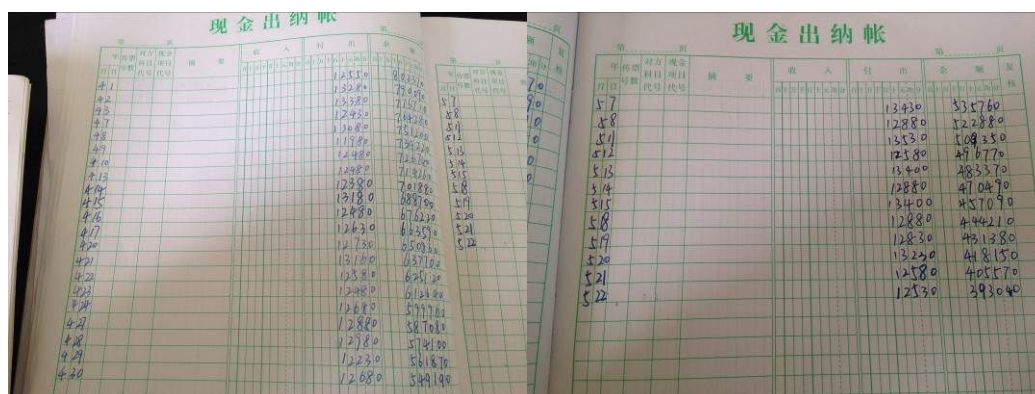 现金出纳帐
第 页
年 传票号数 对方科目代号 现金项目代号 摘要 收入 付出 余额
月 日
4.1 12550
4.2 13280
4.3 13380
4.7 12450
4.8 13080
4.9 11980
4.10 12480
4.13 12480 714260
4.14 12380 701880
4.15 13180 688700
4.16 12480 676220
4.17 12630 663590
4.20 12730 650860
4.21 13160 637700
4.22 12580 625120
4.23 12480 612640
4.24 12680 599960
4.27 12880 587080
4.28 12980 574100
4.29 12230 561870
4.30 12680 549190
对方科目代号 现金项目代号
5.7
5.8
5.11
5.12
5.13
5.14
5.15
5.18
5.19
5.20
5.21
5.22
现金出纳帐
第 页
年 传票号数 对方科目代号 现金项目代号 摘要 收入 付出 余额 复核
月 日
5.7 13430 535760
5.8 12880 522880
5.11 13530 509350
5.12 12580 496770
5.13 13400 483370
5.14 12880 470490
5.15 13400 457090
5.18 12880 444210
5.19 12830 431380
5.20 13230 418150
5.21 12580 405570
5.22 12530 393040